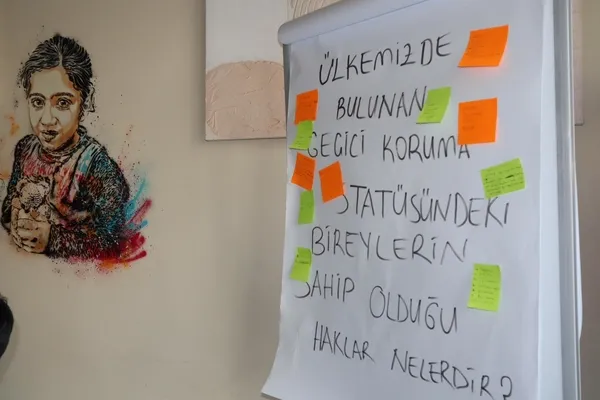 ÜLKEMİZDE
BULUNAN
GEÇİCİ KORUMA
STATÜSÜNDEKİ
BİREYLERİN
SAHİP OLDUĞU
HAKLAR NELERDİR?